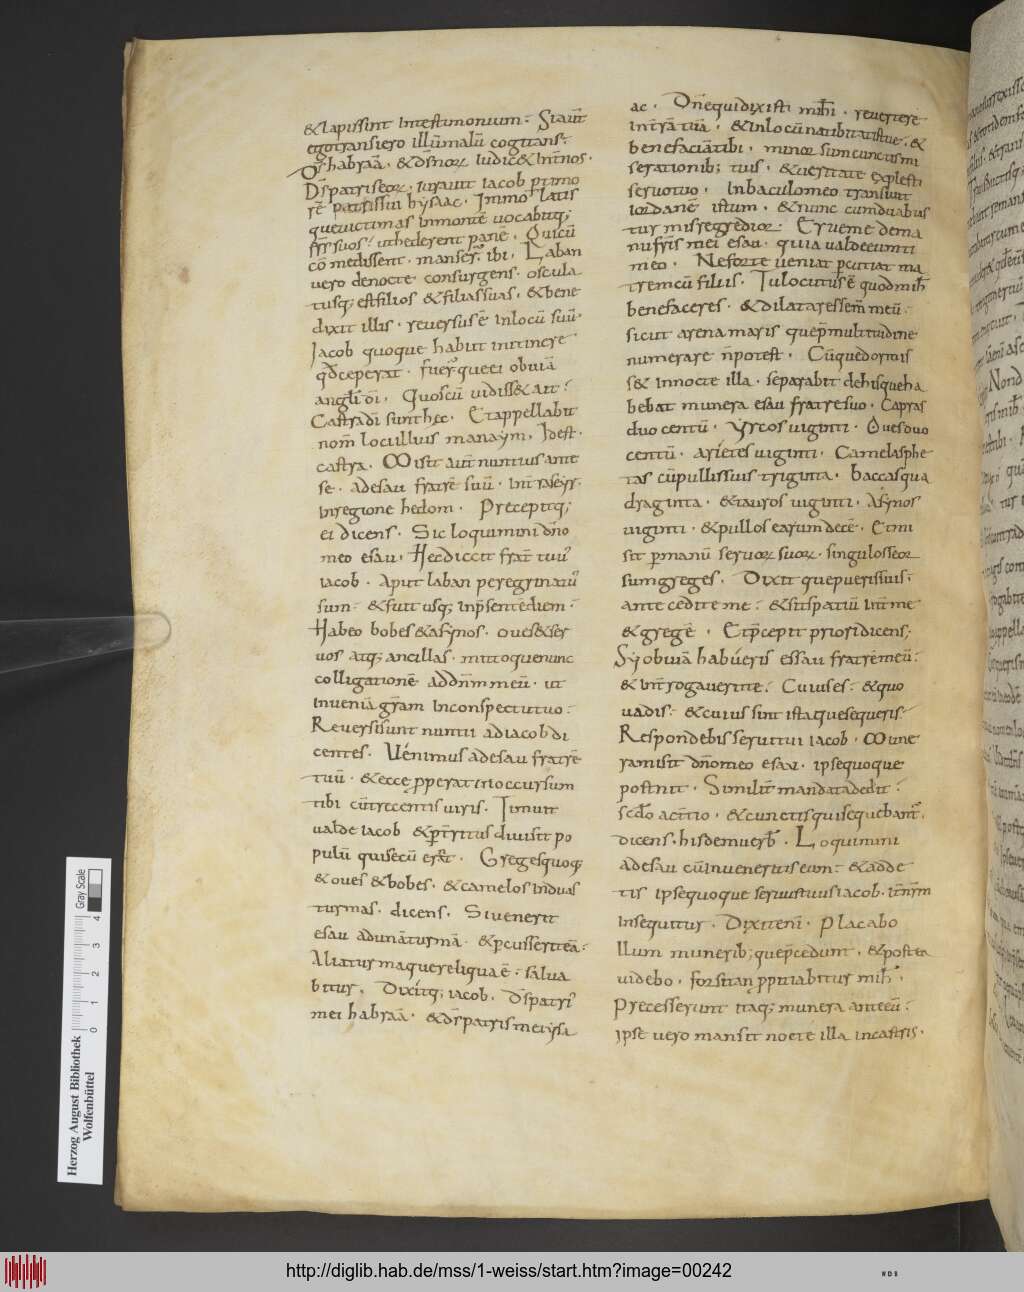 & lapis sint in testimonium· Si aut̄
ego transiero illū malū cogitans·
D̄s habraā· & d̄s nor iudic& int̄ nos·
D̄s patris eor· iurauit iacob p timo
rē patris sui hysaac· Immolatis
que uictimas in monte uocabitq;
fr̄s suos· ut hederent panē· Qui cū
cōmedissent· manser ibi· Laban
uero de nocte consurgens· oscula
tusq; est filios & filias suas· & bene
dixit illis· reuersus ē in locū suū·
Iacob quoque habiit in itinere
qd ceperat· fuer quee ei obuiā
angli di· Quos cū uidiss& ait·
Castra di sunt hec· Et appellabit
nom̄ loci illuis manaym· Id est·
castra· Misit aut̄ nuntius ante
se· ad esau fratrē suū· in t̄ra seyr·
in regione hedom· Precepitq;
ei dicens· Sic loquimini dn̄o
meo esau· Hec dicit frat̄ tuus
iacob· Aput laban peregrinatus
sum· & fui usq; in p̄sentē diem·
Habeo bobes & asynos· oues & ser
uos atq; ancillas· mitto que nunc
colligationē ad dn̄m meū· ut
inueniā gr̄am in conspectu tuo·
Reuersi sunt nuntii ad iacob di
centes· Uenimus ad esau fratrē
tuū· & ecce p̄perat in occursum
tibi cū trecentis uiris· Timuit
ualde iacob & pt̄ritus diuisit po
pulū qui secū erat· Greges quoq;
& oues & bobes· & camelos in duas
turmas· dicens· Si uenerit
esau ad unā turmā· & pcusserit eā·
Alia turma que reliqua ē· salua
bitur· Dixitq; iacob· D̄s patri
mei habraā· & d̄s patris mei ysa
ac· Dn̄e qui dixisti mihi· reuertere
in t̄rā tuā· & in locū natibitatis tue· &
benefaciā tibi· minor sum cunctis mi
serationib; tuis· & ueritate explesti
seruo tuo· In baculo meo transiuit
iordanē istum· & nunc cum duabus
turmis regredior· Erue me de ma
nu fr̄is mei esau· quia ualde eum ti
meo· Ne forte ueniat pcutiat ma
trem cū filiis· Tu locutus ē quod mih
benefaceres· & dilatares sem̄ meū·
sicut arena maris que p̄ multitudine
numerare n̄ potest· Cūque dormis
s& in nocte illa· separabit de his que ha
bebat munera esau fratre suo· Capras
duo centū· Yrcos uiginti· Oues duo
centū· arietes uiginti· Camelas phe
tas cū pullis suis triginta· baccas qua
draginta· & tauros uiginti· Asynos
uiginti· & pullos earum decē· Et mi
sit p manū seruor suor· singulos seor
sum greges· Dixit que pueris suis·
Antecedite me· & sit spatiū int̄ me
& gregē· Et p̄cepit priori dicens·;
Sy obuiā habueris essau fratrē meū·
& int̄rogauerit te· Cuius es· & quo
uadis· & cuius sint ista que sequeris·
Respondebis serui tui iacob· Mune
ra misit dn̄o meo esau· ipse quoque
post n̄ it· Similit̄ mandata dedit·
scdo ac t̄tio· & cunctis qui sequebant·
dicens· hisdem uerb· Loquimini
ad esau cū inueneritis eum· & adde
tis ipse quoque seruus tuus iacob· it̄ nr̄m
insequitur· Dixit eni· Placabo
illum munerib; que p̄cedunt· & postea
uidebo· forsitan p̄pitiabitur mih·
Precesserunt itaq; munera ante eū·
ipse uero mansit nocte illa in castris·
Herzog August Bibliothek
Wolfenbüttel
Gray Scale
0 1 2 3 4
http://diglib.hab.de/mss/1-weiss/start.htm?image=00242